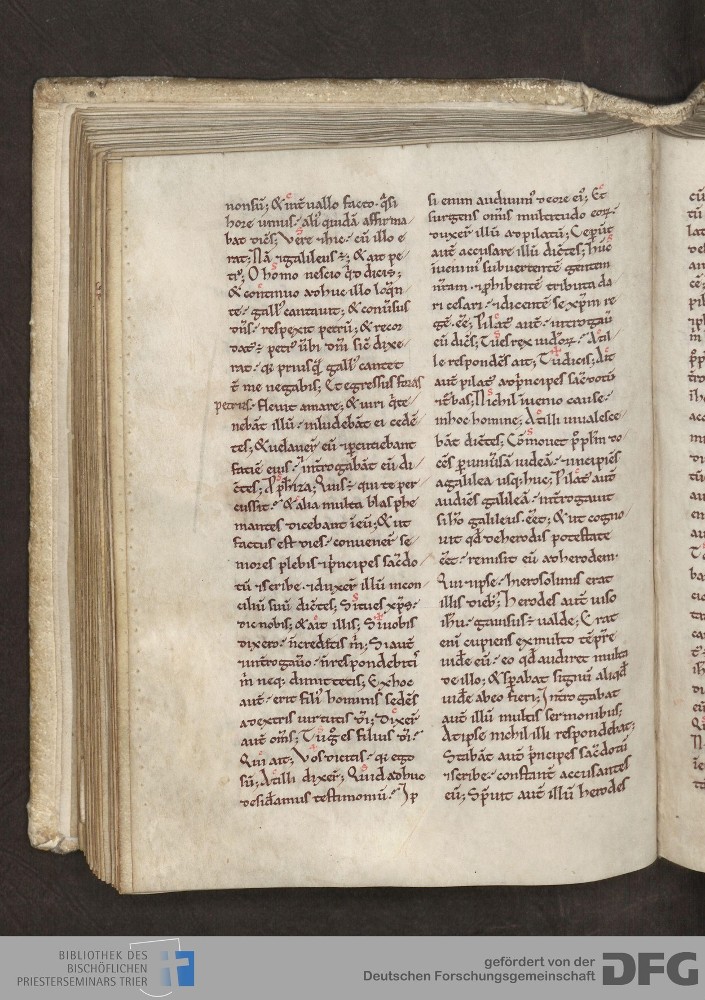 nonsū; & inťuallo facto· q̄si
hore unius· aliꝰ quidā affirma
bat dicēs; Vere & hic· cū illo e
rat; Nā & galileus ē; & ait pe
trꝰ; O homo nescio qd̄ dicis;
& continuo adhuc illo loqn̄
te· gallꝰ cantauit; & conuersus
dn̄s· respexit petrū; & recor
datꝰ ē petrꝰ ūbi dn̄i sic̄ dixe
rat· qa priusq̄ gallꝰ cantet
ť me negabis; Et egressus foras
petrus· fleuit amare; & uiri q̄ te
nebāt illū· inludebāt ei cedē
tes; & uelauer̄ eū & pcutiebant
faciē eius· & inťrogabāt eū di
cētes; pphetiza; Quis ē qui te per
cussit· & alia multa blasphe
mantes dicebant in eū; & ut
factus est dies· conuener̄ se
niores plebis & p̄ncipes sacdo
tū & scribe· & duxer̄ illū in con
ciliū suū dicētes; Si tu es xp̄s·
dic nobis; & ait illis; Si uobis
dixero· n̄ credetis m̄; Si aut̄
& inťrogauero· n̄ respondebitis
m̄ neq; dimittetis; Ex hoc
aut̄· erit filiꝰ hominis sedēs
a dextris uirtutis dī; Dixer̄
aut̄ om̄s; Tu g̊ es filius dī·
Qui ait; Vos dicitis· qa ego
sū; At illi dixer̄; Quid adhuc
desideramus testimoniū· Ip
si enim audiuimꝰ de ore eiꝰ; Et
surgens om̄is multitudo eoꝝ·
duxer̄ illū ad pilatū; Ceper̄ūt
aut̄ accusare illū dicētes; Hūc
inuenimꝰ subuertentē gentem
nr̄am· & phibentē tributa da
ri cesari· & dicentē se xp̄m re
gē· eē; Pilatꝰ aut̄· inťrogauit
eū dicēs; Tu es rex iudeoꝝ· At il
le respondēs ait; Tu dicis; Ait
aut̄ pilatꝰ ad p̄ncipes sacdotū
& t̄bas; Nichil inuenio cause·
in hoc homine; At illi inualesce
bāt dicētes; Cōmouet pp̄lm do
cēs p uniuersā iudeā· & incipiēs
a galilea usq; huc; Pilatꝰ aut̄
audiēs galileā· inťrogauit
si hō galileus eēt; & ut cogno
uit qd̄ de herodis potestate
eēt· remisit eū ad herodem·
Qui & ipse· hierosolimis erat
illis diebꝰ; Herodes aut̄ uiso
ihū· gauisus ē ualde; Erat
eni cupiens ex multo tēpre
uidere eū· eo qd̄ audiret multa
de illo; & sperabat signū aliqd̄
uidere ab eo fieri; Inťrogabat
aut̄ illū multis sermonibus;
At ipse nichil illi respondebat;
Stabāt aut̄ p̄ncipes sacdotū
& scribe· constanť accusantes
eū; Spreuit aut̄ illū herodes
BIBLIOTHEK DES
BISCHÖFLICHEN
PRIESTERSEMINARS TRIER
gefördert von der
Deutschen Forschungsgemeinschaft
DFG